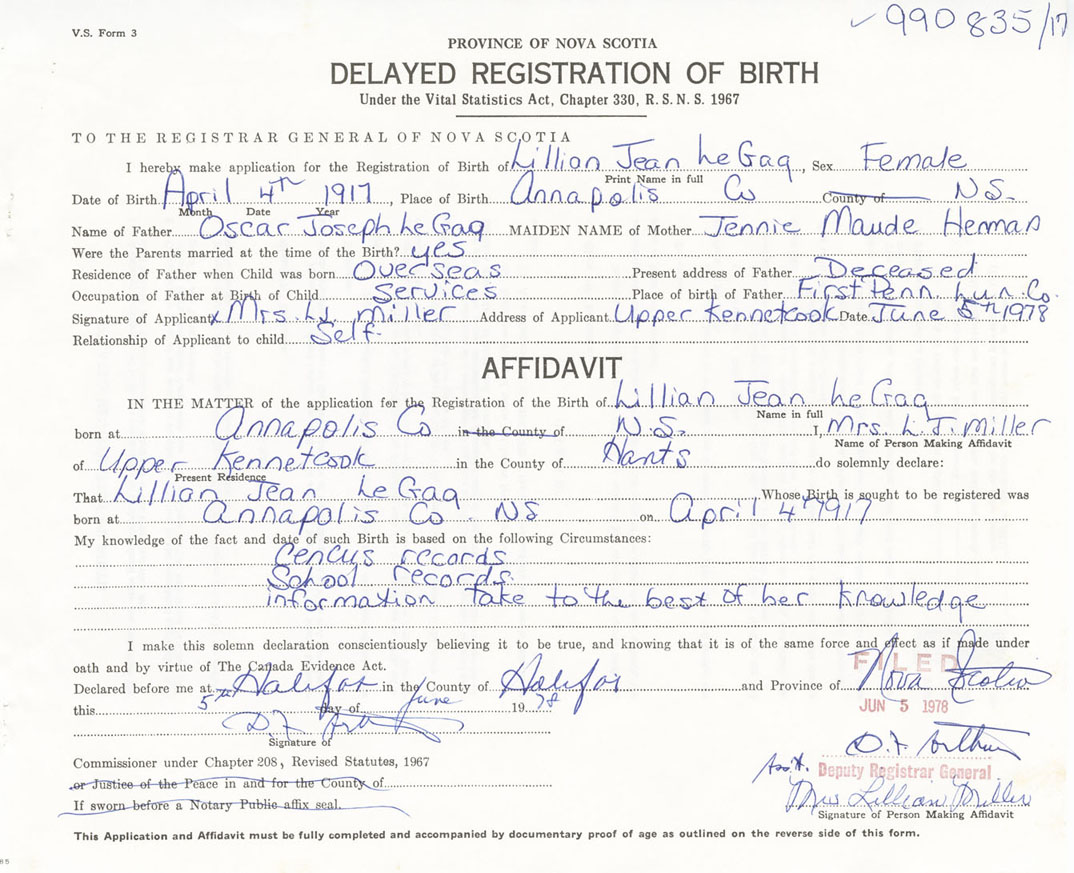 V.S. Form 3
✓990835/17
PROVINCE OF NOVA SCOTIA
DELAYED REGISTRATION OF BIRTH
Under the Vital Statistics Act, Chapter 330, R.S.N.S. 1967
TO THE REGISTRAR GENERAL OF NOVA SCOTIA
I hereby make application for the Registration of Birth of Lillian Jean LeGaq, Sex Female
Print Name in full
Date of Birth April 4th 1917, Place of Birth Annapolis Co County of N.S.
Month Date Year
Name of Father Oscar Joseph LeGaq MAIDEN NAME of Mother Jennie Maude Herman
Were the Parents married at the time of the Birth? yes
Residence of Father when Child was born Overseas Present address of Father Deceased
Occupation of Father at Birth of Child Services Place of birth of Father First Penn. Lun. Co.
Signature of Applicant x Mrs. L.J. Miller Address of Applicant Upper Kennetcook Date June 5th 1978
Relationship of Applicant to child Self-
AFFIDAVIT
IN THE MATTER of the application for the Registration of the Birth of Lillian Jean LeGaq
Name in full
born at Annapolis Co in the County of N.S. I, Mrs. L.J. Miller
Name of Person Making Affidavit
of Upper Kennetcook in the County of Hants do solemnly declare:
Present Residence
That Lillian Jean LeGaq Whose Birth is sought to be registered was
born at Annapolis Co. NS on April 4th 1917
My knowledge of the fact and date of such Birth is based on the following Circumstances:
Cencus records
School records.
information take to the best of her knowledge
I make this solemn declaration conscientiously believing it to be true, and knowing that it is of the same force and effect as if made under
oath and by virtue of The Canada Evidence Act.
FILED
Declared before me at Halifax in the County of Halifax and Province of Nova Scotia
this 5th day of June 1978
JUN 5 1978
D.F. Arthur
Signature of
D.F. Arthur
Commissioner under Chapter 208, Revised Statutes, 1967
Ass't. Deputy Registrar General
or Justice of the Peace in and for the County of
Mrs Lillian Miller
If sworn before a Notary Public affix seal.
Signature of Person Making Affidavit
This Application and Affidavit must be fully completed and accompanied by documentary proof of age as outlined on the reverse side of this form.
85